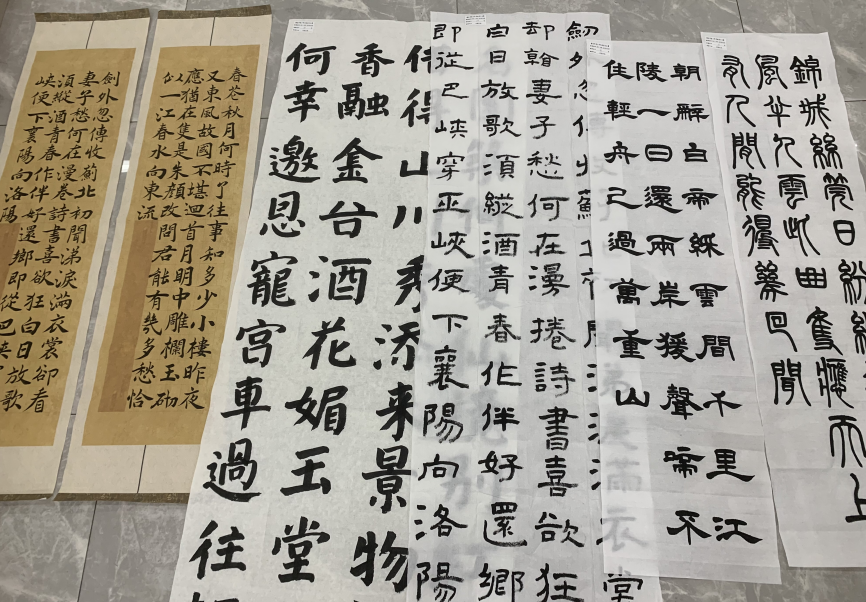 劍外忽傳收薊北初聞涕淚滿衣裳卻看
妻子愁何在漫卷詩書喜欲狂白日放歌
須縱酒青春作伴好還鄉即從巴峽
峽便下襄陽向洛陽
春花秋月何時了往事知多少小樓昨夜
又東風故國不堪迴首月明中雕欄玉砌
應猶在隻是朱顏改問君能有幾多愁恰
似一江春水向東流
得山川秀添来景物
香融金谷酒花媚玉堂
何幸邀恩寵宮車過往
劍外忽滿衣裳
却看妻子愁何在漫捲詩書喜欲狂
白日放歌須縱酒青春作伴好還鄉
即從巴峽穿巫峽便下襄陽向洛陽
朝辭白帝綵雲間千里江
陵一日還兩岸猿聲啼不
住輕舟已過萬重山
錦城絲管日紛紛
風半入雲此曲隻應天上
有人間能得幾回聞